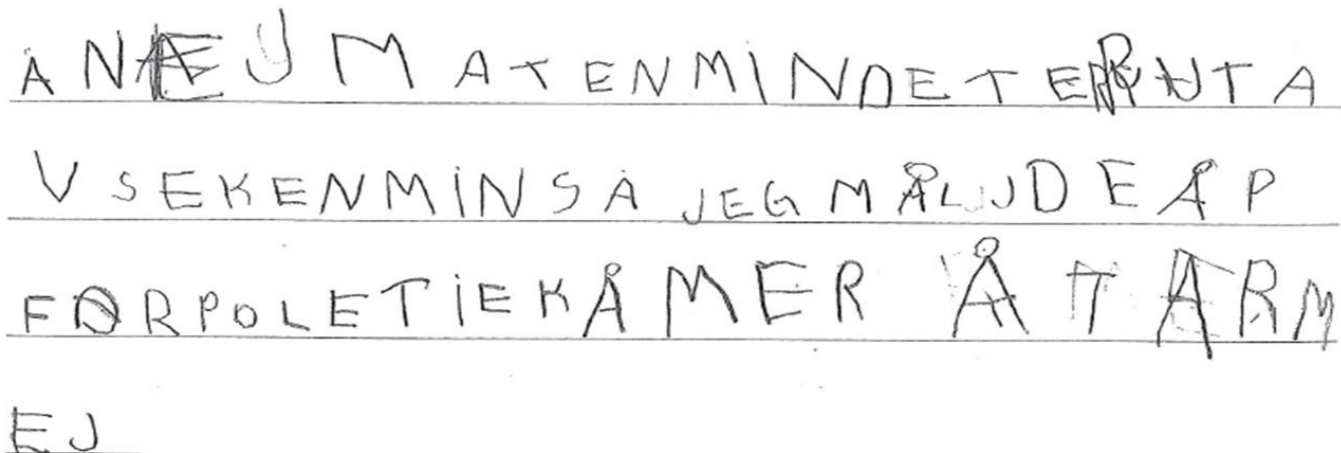 Å NÆJ M ATENMINDETERUTA
V SEKENMINSÅ JEG MÅLJDE ÅP
FØRPOLETIEKÅMER Å TARM
EJ